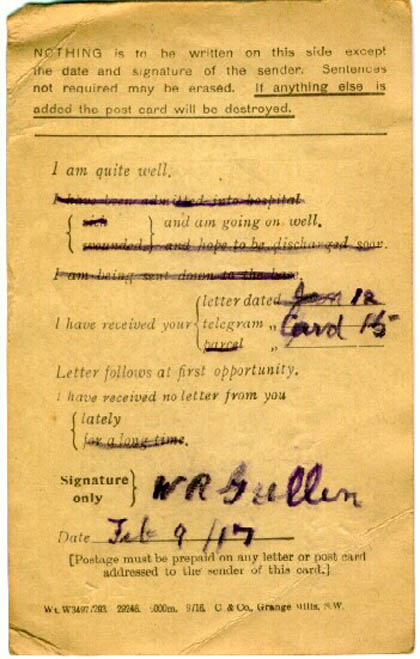 NOTHING is to be written on this side except
the date and signature of the sender. Sentences
not required may be erased. If anything else is
added the post card will be destroyed.
I am quite well.
I have been admitted into hospital
sick and am going on well.
wounded and hope to be discharged soon.
I am being sent down to the base.
letter dated Jan 12
I have received your telegram „ Card 15
parcel „
Letter follows at first opportunity.
I have received no letter from you
lately
for a long time.
Signature only W R Gullen
Date Feb 9/17
[Postage must be prepaid on any letter or post card
addressed to the sender of this card.]
Wt. W3497/293. 29246. 6000m. 9/16. C. & Co., Grange Mills, S.W.